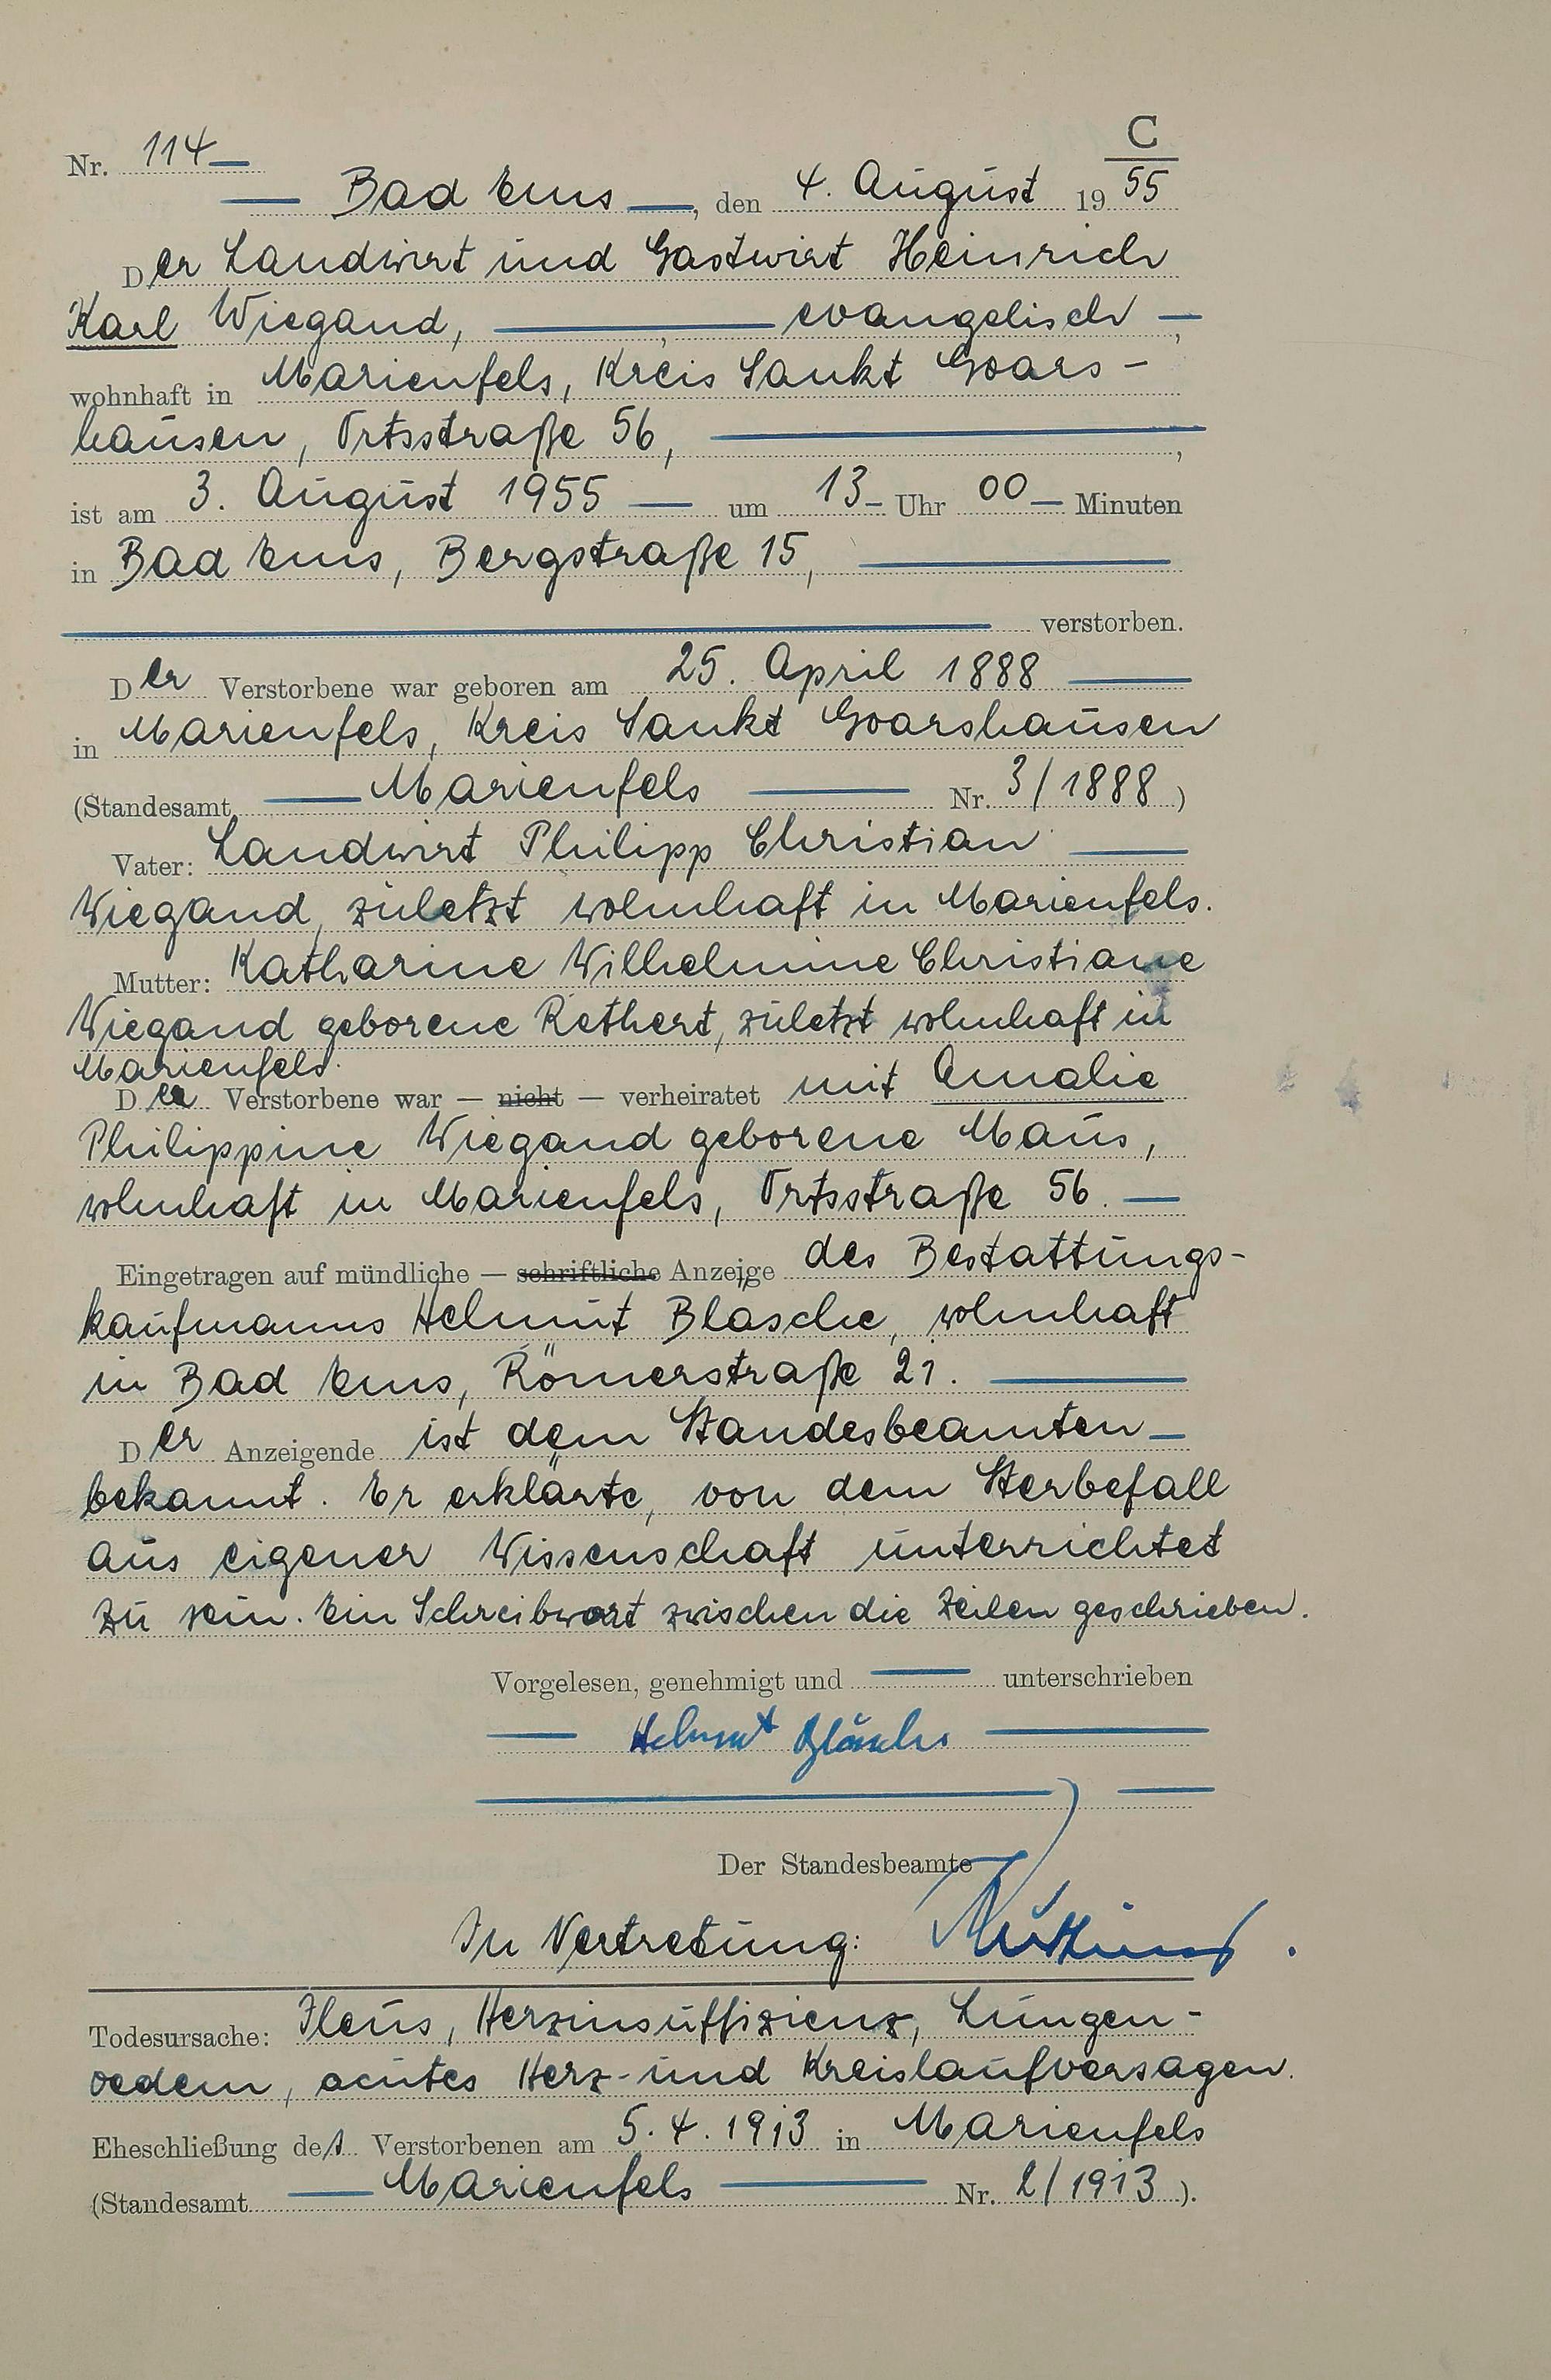 C
Nr. 114
Bad Ems, den 4. August 1955
Der Landwirt und Gastwirt Heinrich
Karl Wiegand, evangelisch,
wohnhaft in Marienfels, Kreis Sankt Goars-
hausen, Ortsstraße 56,
ist am 3. August 1955 um 13 Uhr 00 Minuten
in Bad Ems, Bergstraße 15,
verstorben.
Der Verstorbene war geboren am 25. April 1888
in Marienfels, Kreis Sankt Goarshausen
(Standesamt Marienfels Nr. 3/1888)
Vater: Landwirt Philipp Christian
Wiegand, zuletzt wohnhaft in Marienfels.
Mutter: Katharine Wilhelmine Christiane
Wiegand geborene Rethert, zuletzt wohnhaft in
Marienfels.
Der Verstorbene war — nicht — verheiratet mit Amalie
Philippine Wiegand geborene Maus,
wohnhaft in Marienfels, Ortsstraße 56.
Eingetragen auf mündliche — schriftliche Anzeige des Bestattungs-
kaufmanns Helmut Bläsche, wohnhaft
in Bad Ems, Römerstraße 21.
Der Anzeigende ist dem Standesbeamten
bekannt. Er erklärte, von dem Sterbefall
aus eigener Wissenschaft unterrichtet
zu sein. Ein Schreibwort zwischen die Zeilen geschrieben.
Vorgelesen, genehmigt und unterschrieben
Helmut Bläsche
Der Standesbeamte
In Vertretung:
Todesursache: Ileus, Herzinsuffizienz, Lungen-
oedem, acutes Herz- und Kreislaufversagen.
Eheschließung des Verstorbenen am 5.4.1913 in Marienfels
(Standesamt Marienfels Nr. 2/1913).